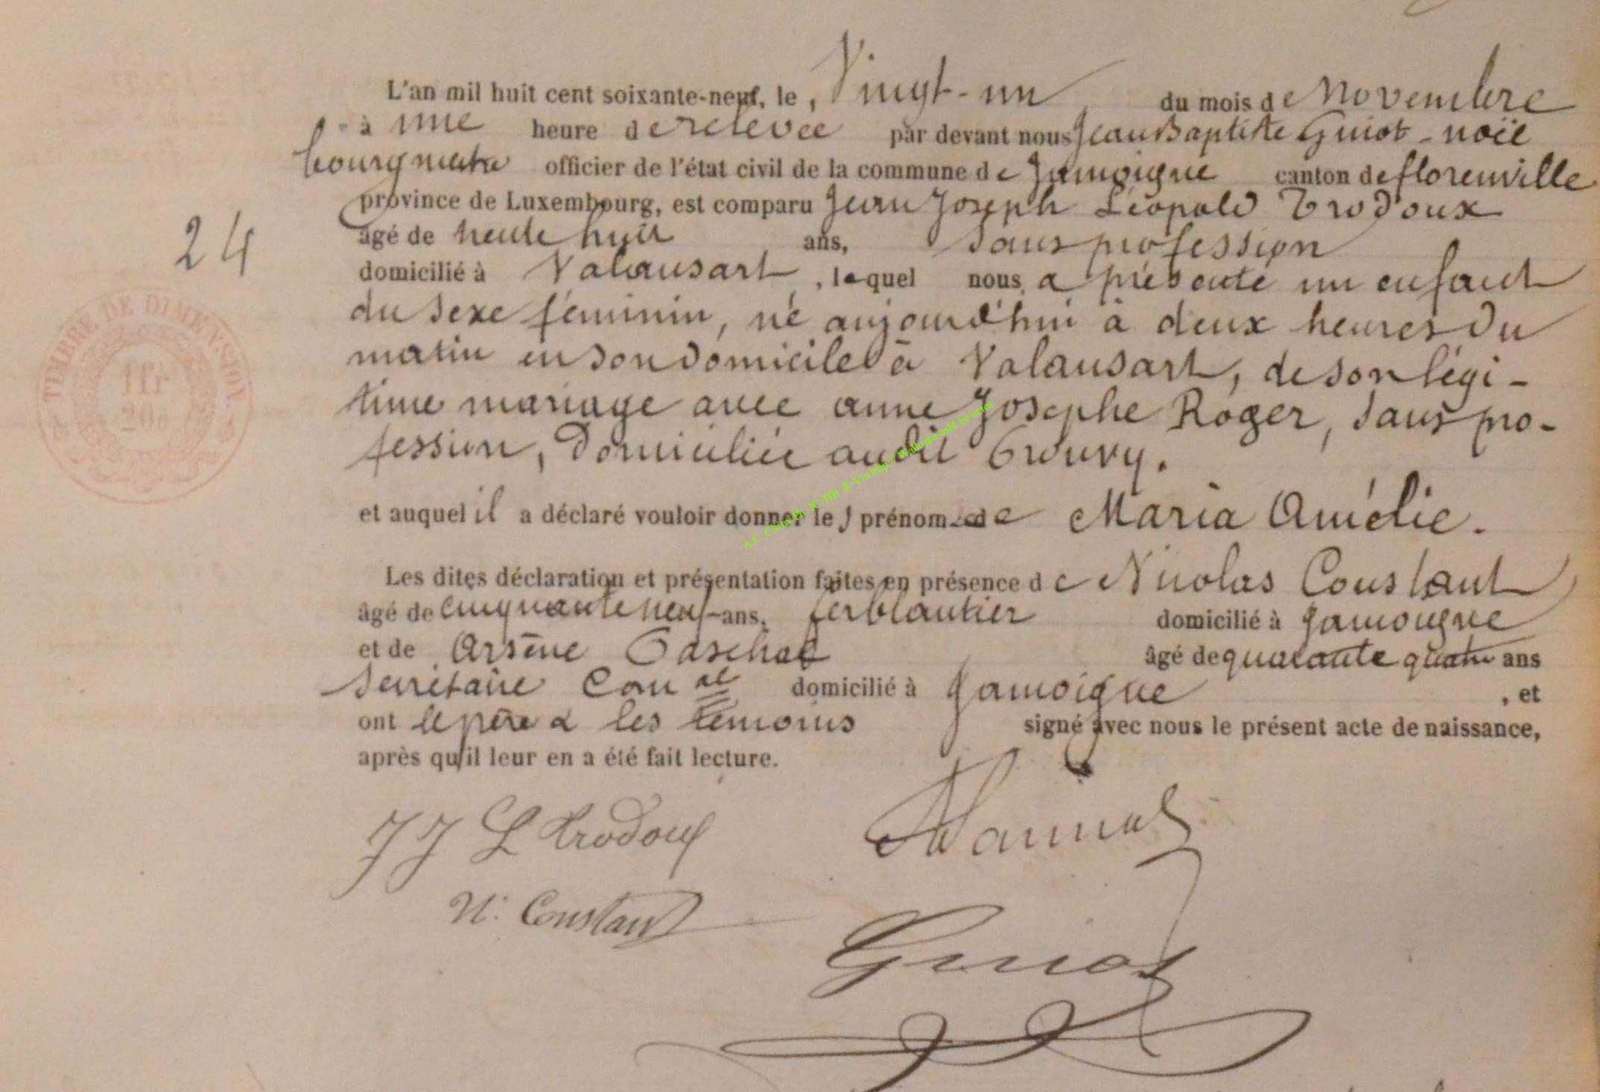 L'an mil huit cent soixante-neuf, le Vingt-un du mois de Novembre
à une heure de relevée par devant nous Jean Baptiste Guiot-noël
bourgmestre officier de l'état civil de la commune de Jamoigne canton de florenville
province de Luxembourg, est comparu Jean Joseph Léopold Trodoux
âgé de trente huit ans, sans profession
domicilié à Valansart, lequel nous a présenté un enfant
du sexe féminin, né aujourd'hui à deux heures du
matin en son domicile à Valansart, de son légi-
time mariage avec anne Josephe Roger, sans pro-
fession, Domiciliée audit
et auquel il a déclaré vouloir donner les prénoms de Maria Amélie.
Les dites déclaration et présentation faites en présence de Nicolas Constant
âgé de cinquante neuf ans, ferblantier domicilié à Jamoigne
et de Arsène âgé de quarante quatre ans
Secrétaire Comal domicilié à Jamoigne, et
ont le père & les témoins signé avec nous le présent acte de naissance,
après qu'il leur en a été fait lecture.
24
TIMBRE DE DIMENSION
1 fr
20c
J J L Trodoux
N. Constant
Guiot